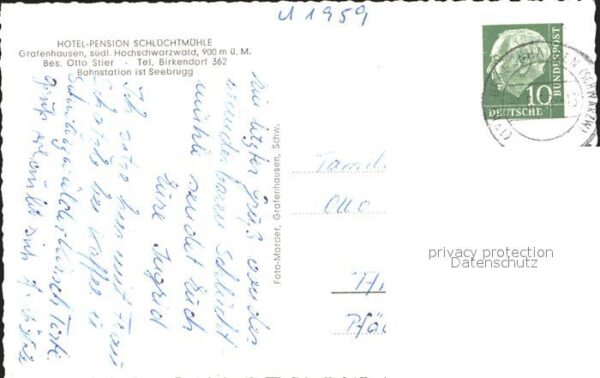 U 1959
HOTEL-PENSION SCHLÜCHTMÜHLE
Grafenhausen, südl. Hochschwarzwald, 900 m ü. M.
Bes. Otto Stier · Tel. Birkendorf 362
Bahnstation ist Seebrugg
Ein letzter Gruß aus der
wunderbaren Schlücht-
mühle sendet Euch
Eure Ingrid
Ich sitze hier mit Frau
bei Kaffee u.
Schwarzwälderkirsch Torte.
Foto-Marder, Grafenhausen, Schw.
10
DEUTSCHE
BUNDESPOST
(SCHWARZW)
Famil
Otto
privacy protection
Datenschutz